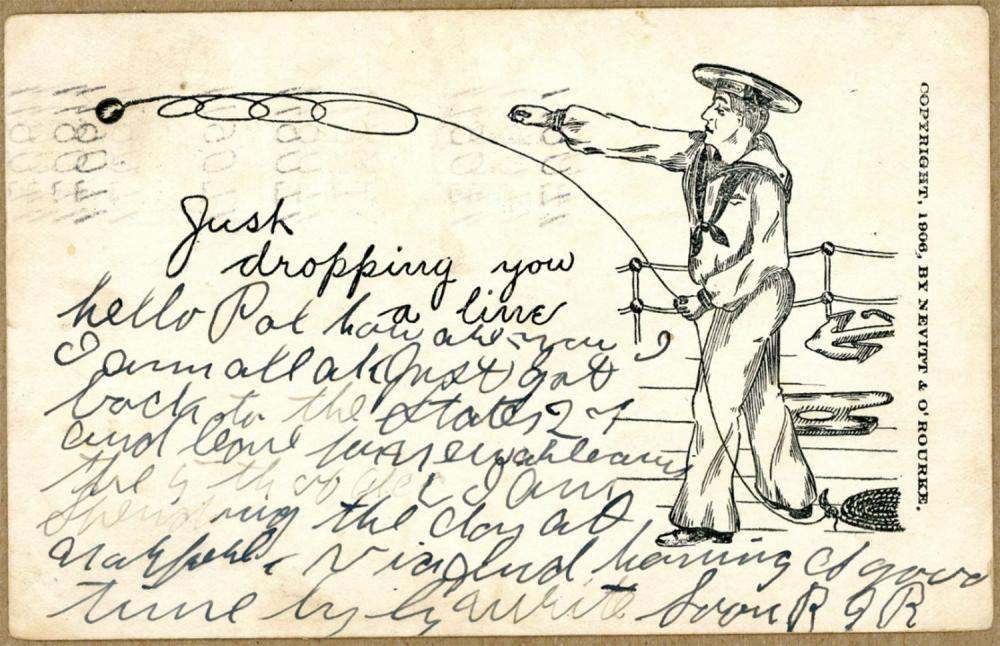 Just
dropping you
a line
hello Pal how are you I
am all ok Just got
back to the States 27
and leave for new orleans
the 5th of dec I am
Spending the day at
norfolk Via and having a good
time by by write Soon R G R
COPYRIGHT, 1906, BY NEVITT & O'ROURKE.